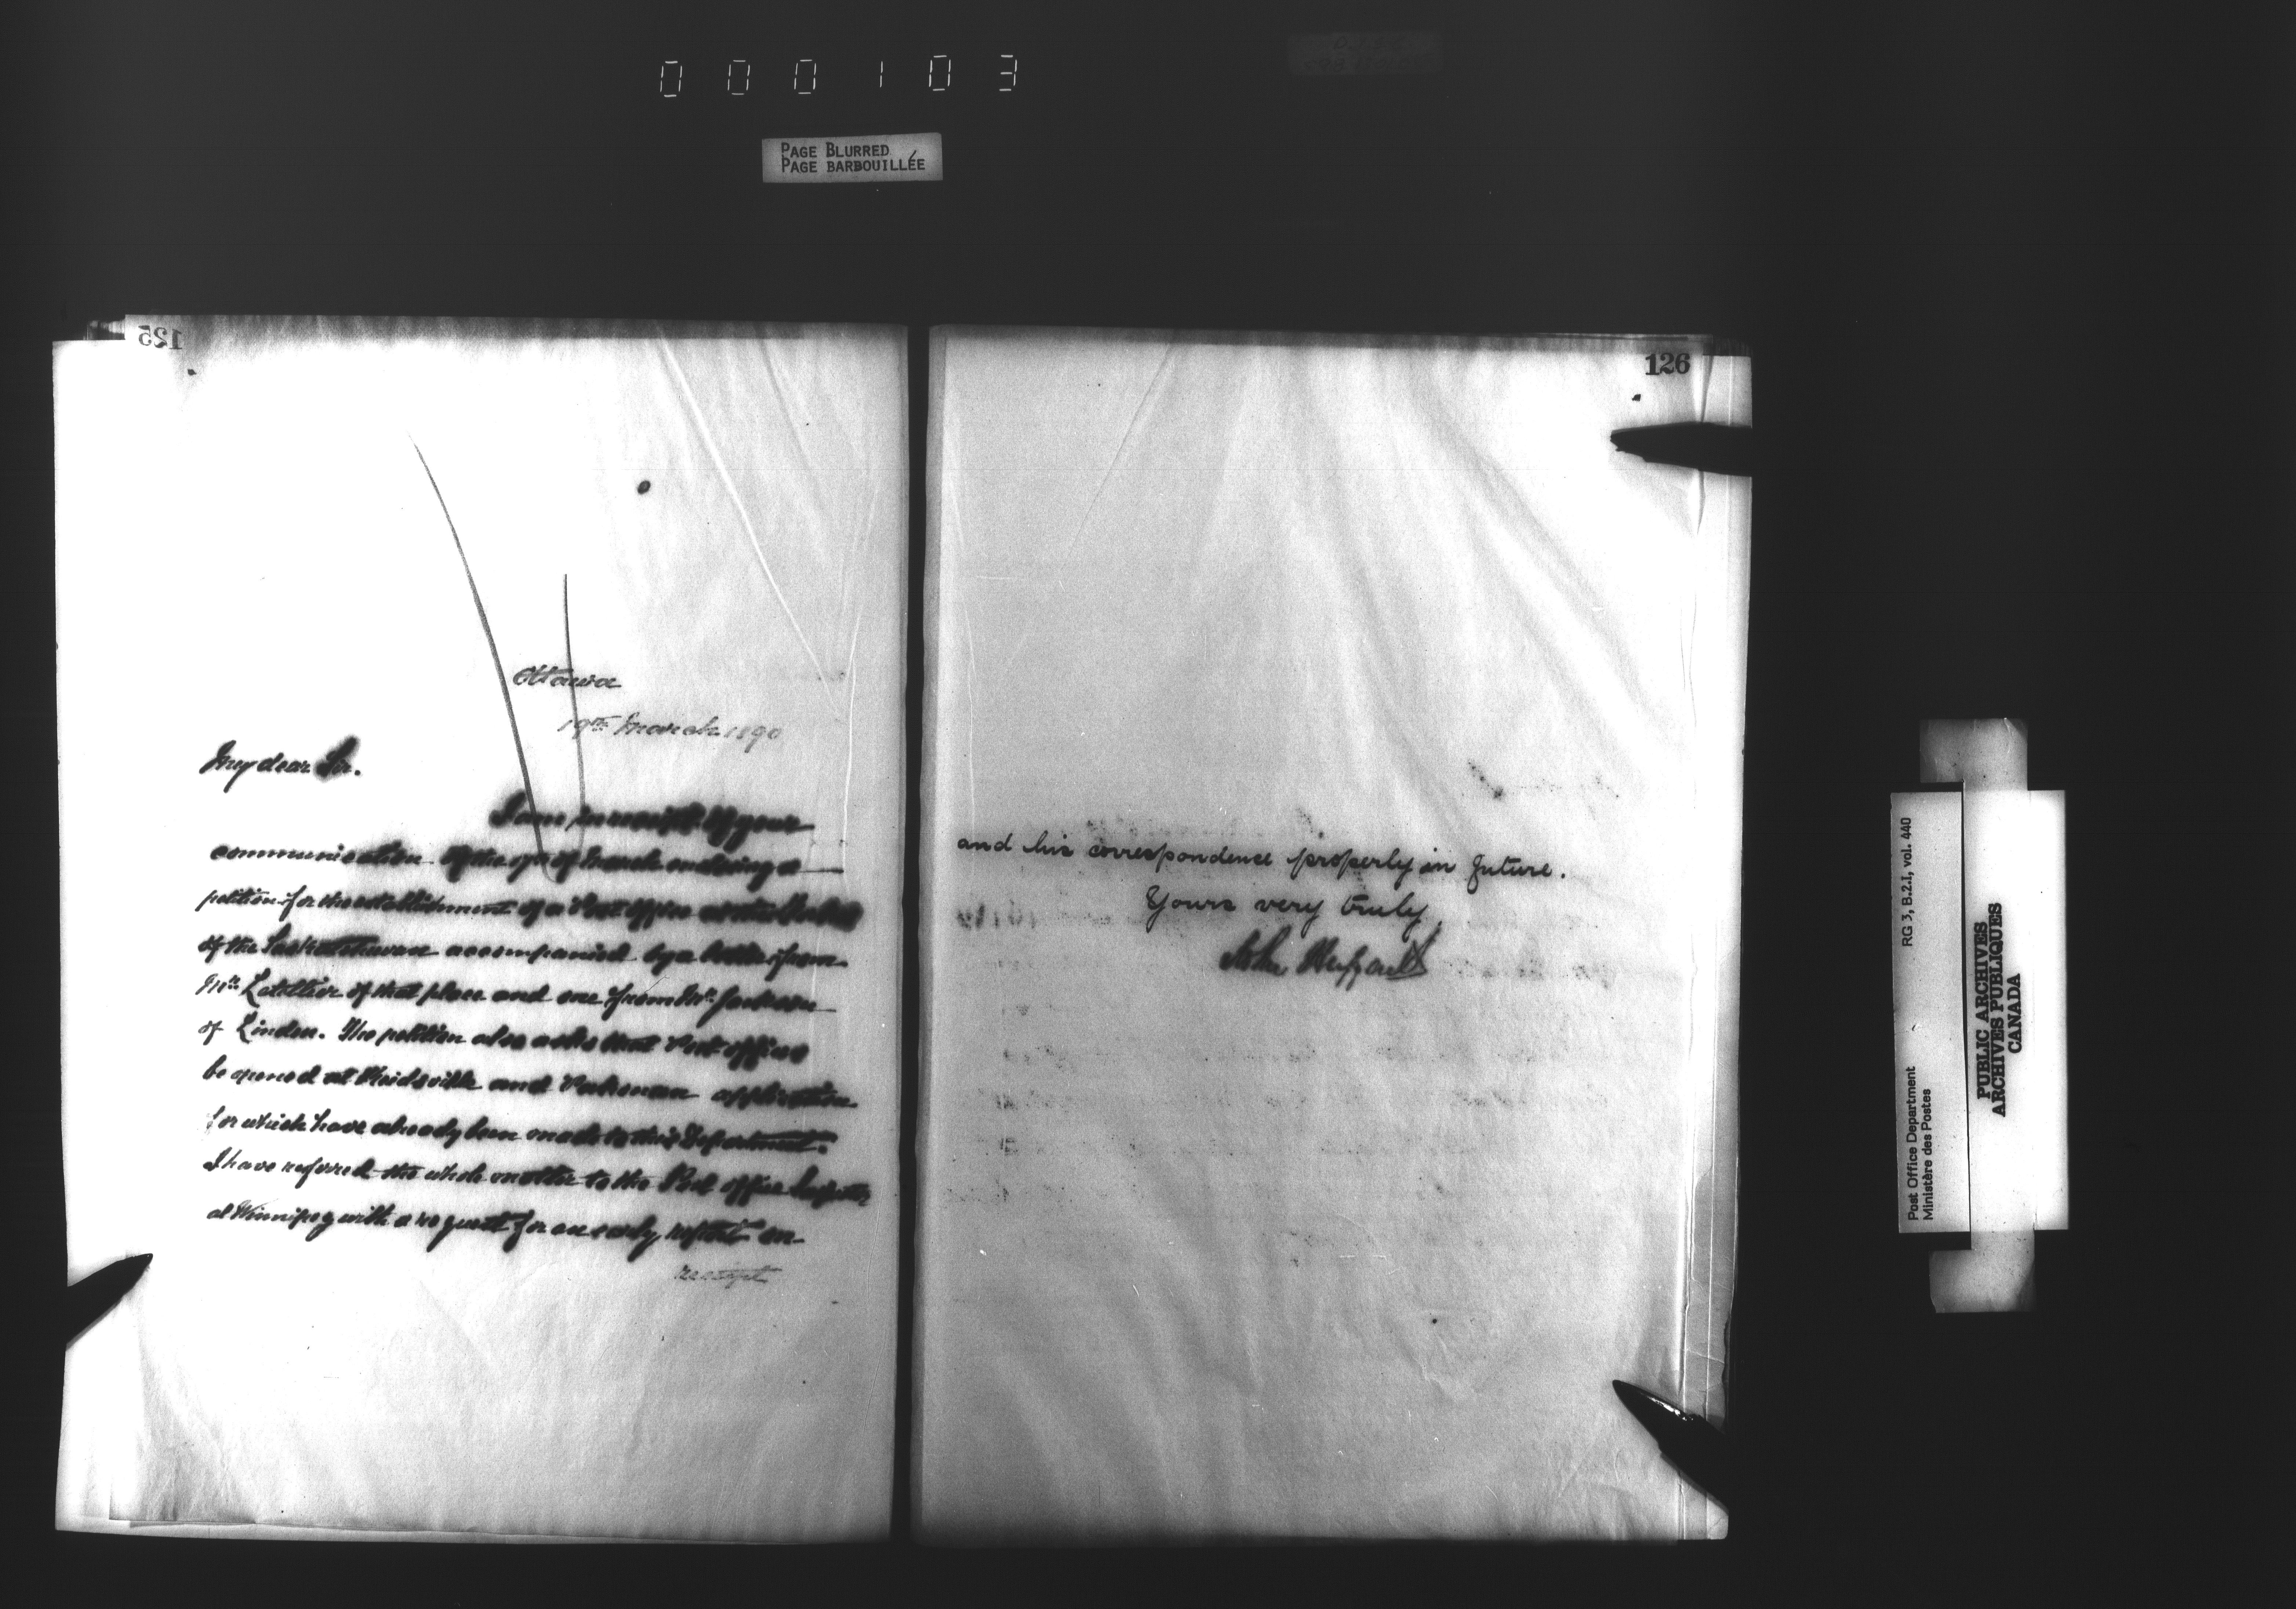 000103
PAGE BLURRED
PAGE BARBOUILLÉE
125
Ottawa
19th March 1890
My dear Sir.
I am in receipt of your
communication of the of March enclosing a
petition for the establishment of a Post office at the
of the Saskatchewan accompanied by a letter from
Mr. Letellier of that place and one from Mr. Jackson
of Linden. The petition also asks that Post offices
be opened at and application
for which have already been made to this Department.
I have referred the whole matter to the Post office Inspector
at Winnipeg with a request for an early report on
receipt
126
and his correspondence properly in future.
Yours very truly
John Haggart
RG 3, B.2.I, vol. 440
Post Office Department
Ministère des Postes
PUBLIC ARCHIVES
ARCHIVES PUBLIQUES
CANADA